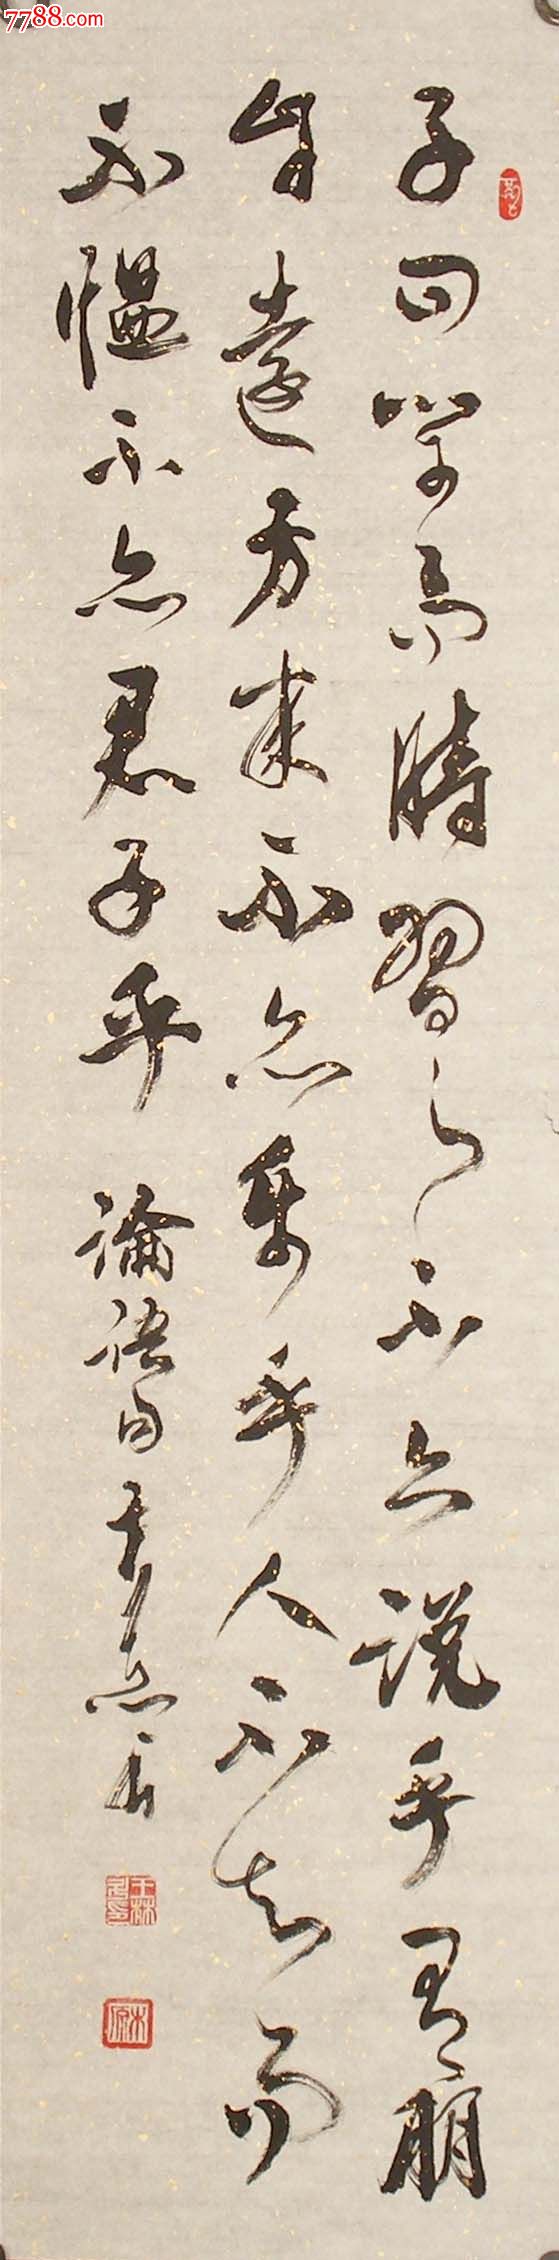 7788.com
子曰學而時習之不亦說乎有朋
自遠方來不亦樂乎人不知而
不慍不亦君子乎 論語句